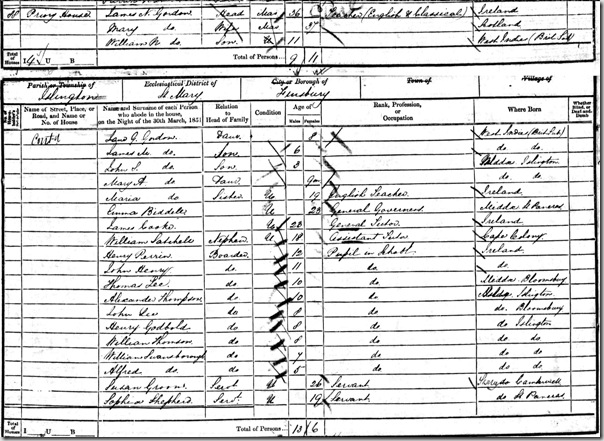 Priory House James N. Gordon Head Mar 36 Teacher (English & Classical) Ireland
Mary do. Wife Mar 37 Scotland
William N. do. Son U 11 West Indies (Brit Sub)
Total of Houses I 4 U B Total of Persons 9 11
Parish or Township of Islington
Ecclesiastical District of St Mary
City or Borough of Finsbury
Town of
Village of
Name of Street, Place, or Road, and Name or No. of House
Name and Surname of each Person who abode in the house, on the Night of the 30th March, 1851
Relation to Head of Family
Condition
Age of Males Females
Rank, Profession, or Occupation
Where Born
Whether Blind, or Deaf-and-Dumb
Contd Jane G. Gordon Daur 8 West Indies (Brit Sub)
James M. do. Son 6 do. do.
John S. do. Son 3 Middx Islington
Mary A. do. Daur do. do.
Maria do. Sister U 19 English Teacher Ireland
Emma Biddell U 23 General Governess Middx St Pancras
James Cooke U 23 General Tutor Ireland
William Satchell Nephew U 18 Assistant Tutor Cape Colony
Henry Perrin Boarder 12 Pupil in Ireland
John Henry do. 11 do. do.
Thomas Lee do. 10 do. Middx Bloomsbury
Alexander Thompson do. 10 do. Islington
John Lee do 8 do do. Bloomsbury
Henry Godbold do 8 do do Islington
William Thomson do 8 do do. do.
William Swansborough do 7 do do. do
Alfred do. do 5 do do do
Susan Groom Servt U 26 Servant Camberwell
Sophia Shepherd Servt U 19 Servant do St Pancras
Total of Houses I U B Total of Persons 13 6